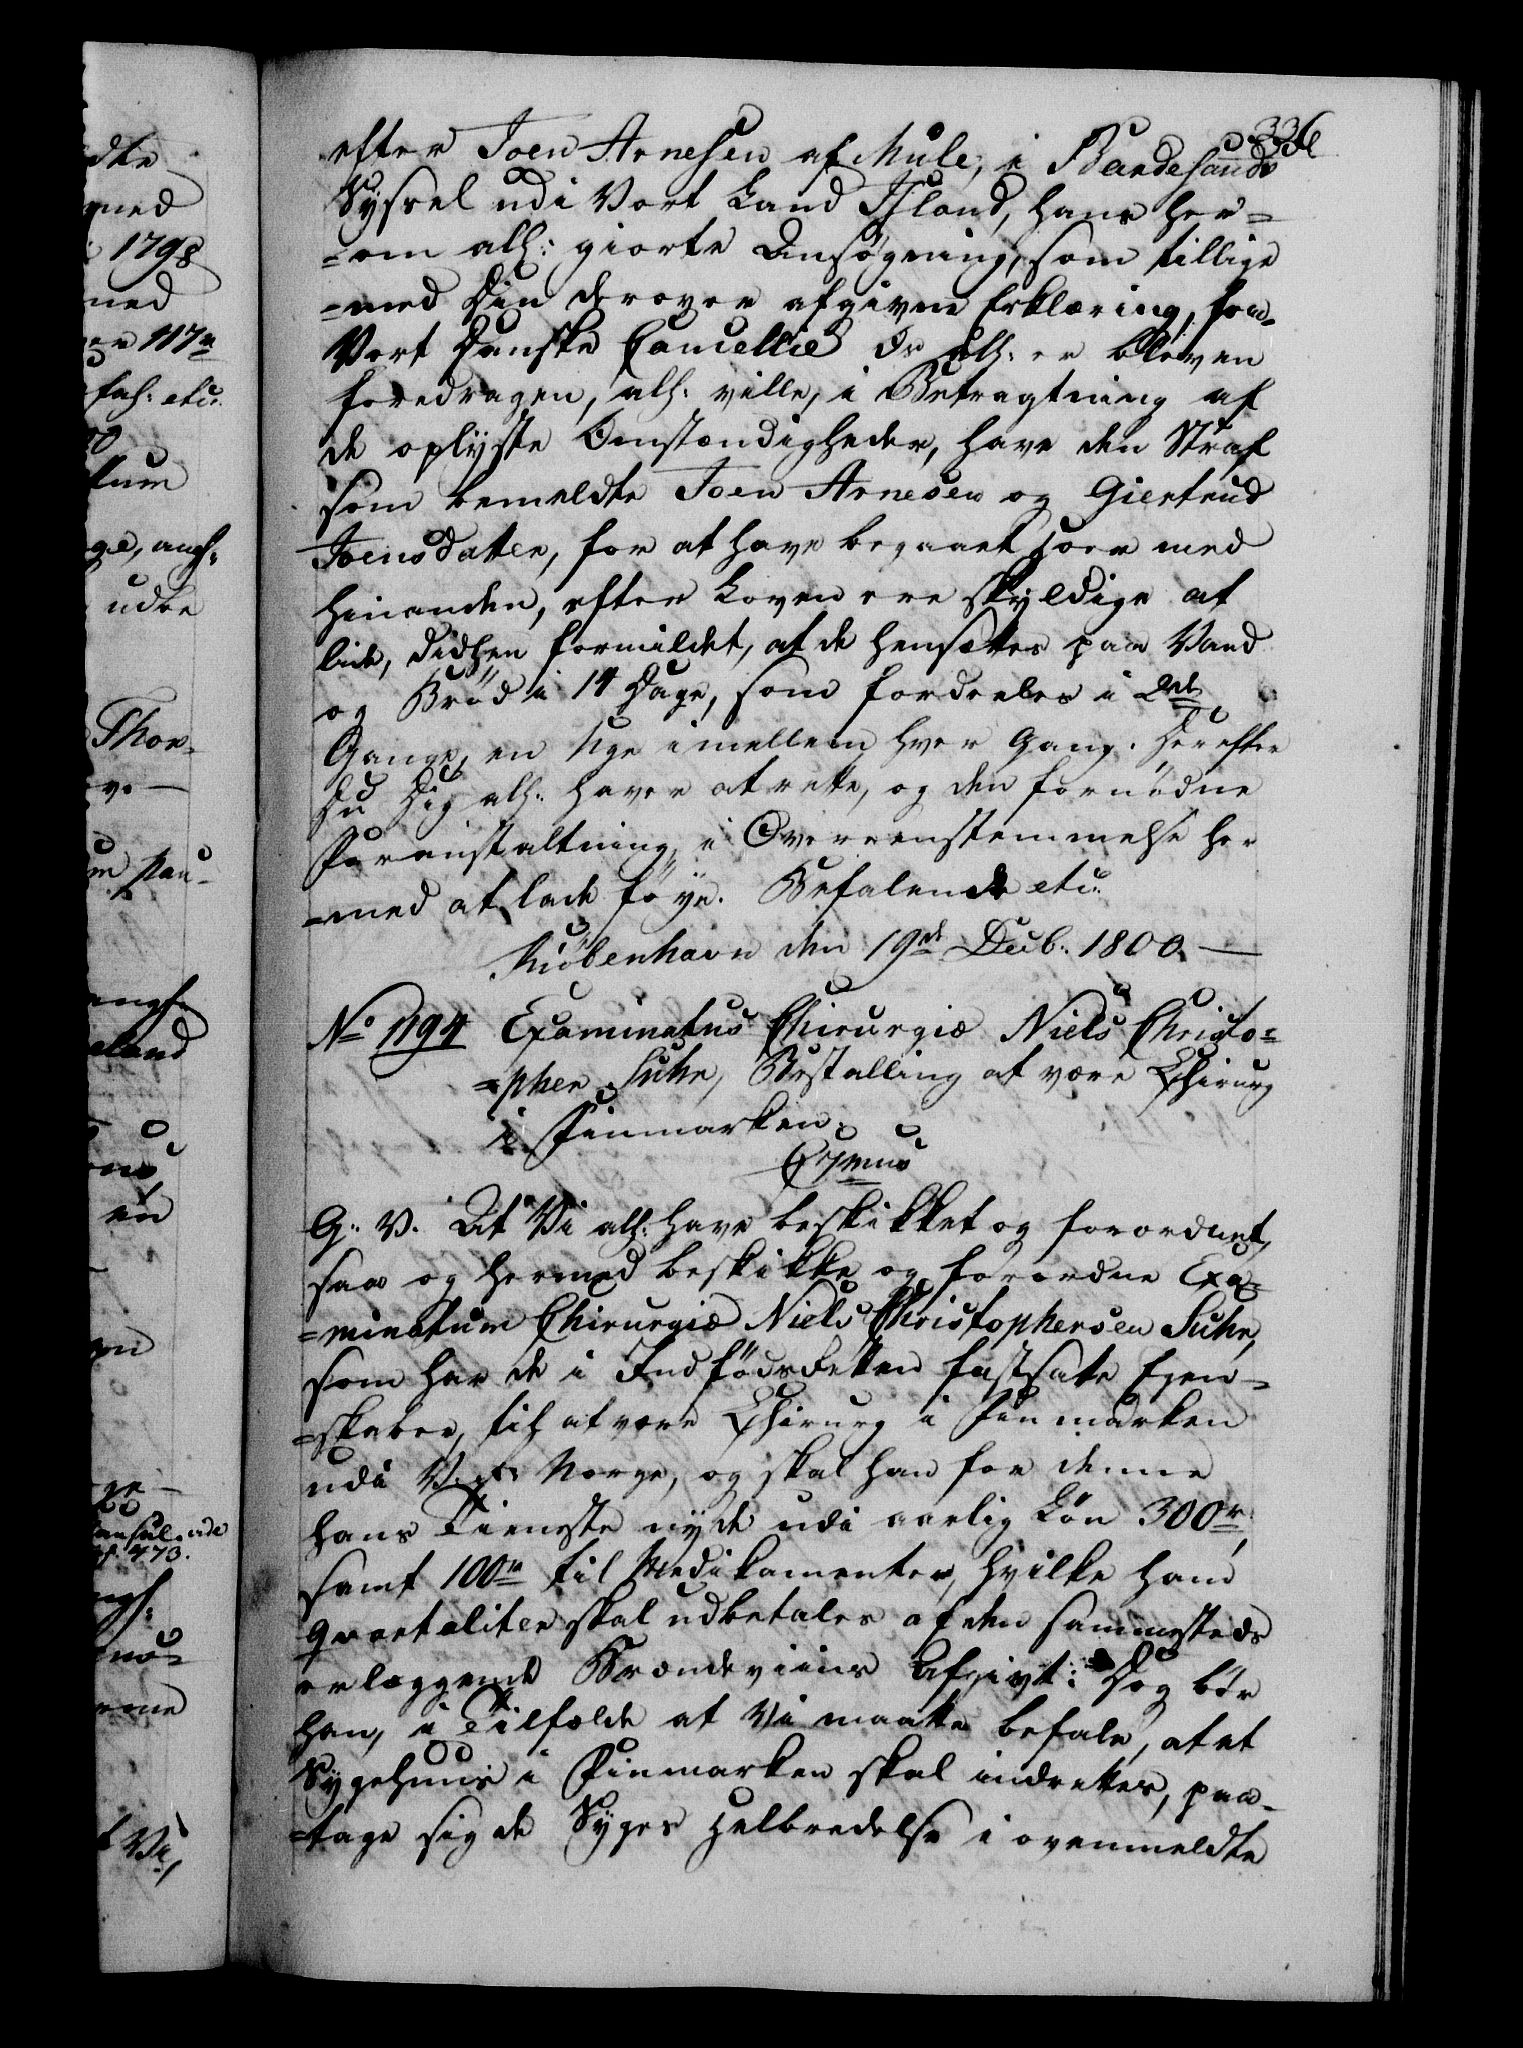 336
efter Joen Arnesen af Mule, i Bardestrands
Syssel udi Vort Land Island, hans her=
=om alh: giorte Ansøgning, som tillige
=med Din derover afgivne Erklæring, for
Vort Danske Cancellie Os alh: er bleven
foredragen, alh: ville, i Betragtning af
de oplyste Omstændigheder, have den Straf
som bemeldte Joen Arnesen og Giertrud
Joensdatter, for at have begaaet Hoer med
hinanden, efter Loven ere skyldige at
lide, didhen formildet, at de hensættes paa Vand
og Brød i 14 Dage, som fordeeles i
Gange, en Uge imellem hver Gang. Herefter
Du Dig alh: haver at rette, og den fornødne
Foranstaltning, i Overeenstemmelse her
=med at lade føye. Befalende etc:
Kiøbenhavn den 19de Decb: 1800. —
No 1194 Examinatus Chirurgiæ Niels Christo=
=pher Suhr, Bestalling at være Chirurg
i Finmarken.
G: V. At Vi alh: have beskikket og forordnet,
saa og hermed beskikke og forordne Exa=
=minatum Chirurgiæ Niels Christophersen Suhr,
som har de i Indfødsretten fastsatte Egen=
=skaber, til at være Chirurg i Finmarken
udi V. R: Norge, og skal han for denne
hans Tieneste nyde udi aarlig Løn 300 r
samt 100 r til Medikamenter, hvilke ham
qvartaliter skal udbetales af den sammesteds
erlæggende Brændeviins Afgivt: Dog bør
han, i Tilfælde at Vi maatte befale, at et
Sygehuus i Finmarken skal indrettes, paa=
=tage sig de Syges Helbredelse i ovenmeldte